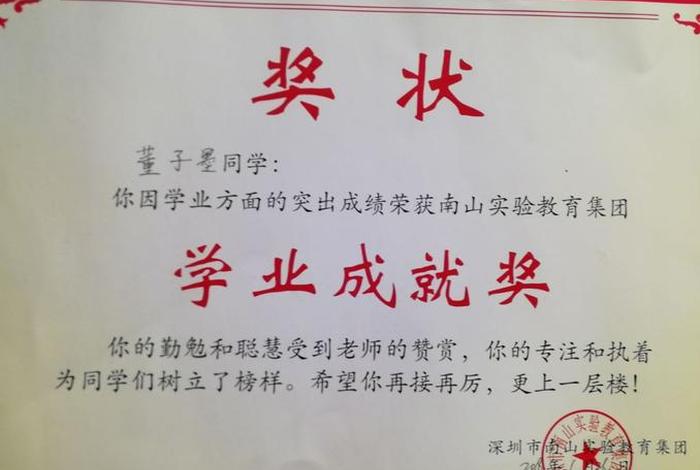 奖状
董子墨同学：
你因学业方面的突出成绩荣获南山实验教育集团
学业成就奖
你的勤勉和聪慧受到老师的赞赏，你的专注和执着
为同学们树立了榜样。希望你再接再厉，更上一层楼！
深圳市南山实验教育集团